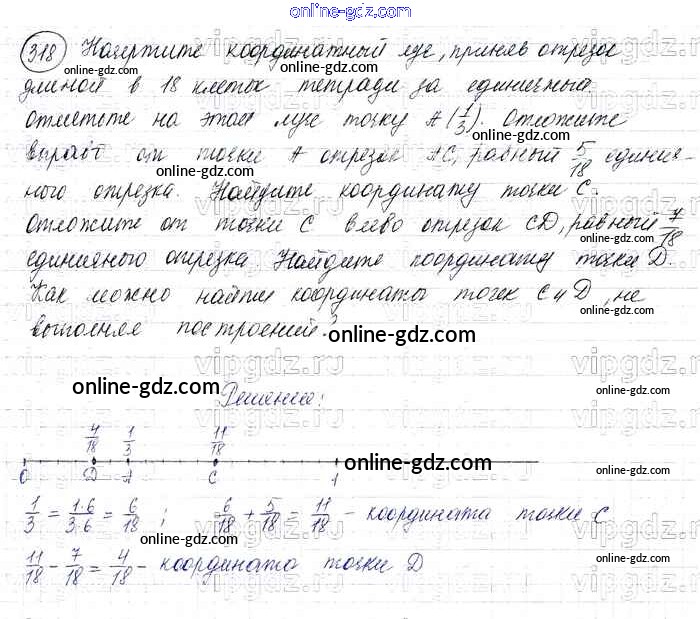 online-gdz.com
318 Начертите координатный луч, приняв отрезок
online-gdz.com
длиной в 18 клеток тетради за единичный.
online-gdz.com
Отметьте на этом луче точку A(1/3). Отложите
вправо от точки A отрезок AC, равный 5/18 единич-
online-gdz.com
ного отрезка. Найдите координату точки C.
online-gdz.com
Отложите от точки C влево отрезок CD, равный 7/18
online-gdz.com
единичного отрезка. Найдите координату точки D.
online-gdz.com
Как можно найти координаты точек C и D, не
выполняя построений?
online-gdz.com
vipgdz.ru
online-gdz.com
Решение:
online-gdz.com
4/18 1/3 11/18
online-gdz.com
0 D A C 1
1/3 = 1·6/3·6 = 6/18 ; 6/18 + 5/18 = 11/18 – координата точки C
online-gdz.com
11/18 - 7/18 = 4/18 – координата точки D
online-gdz.com